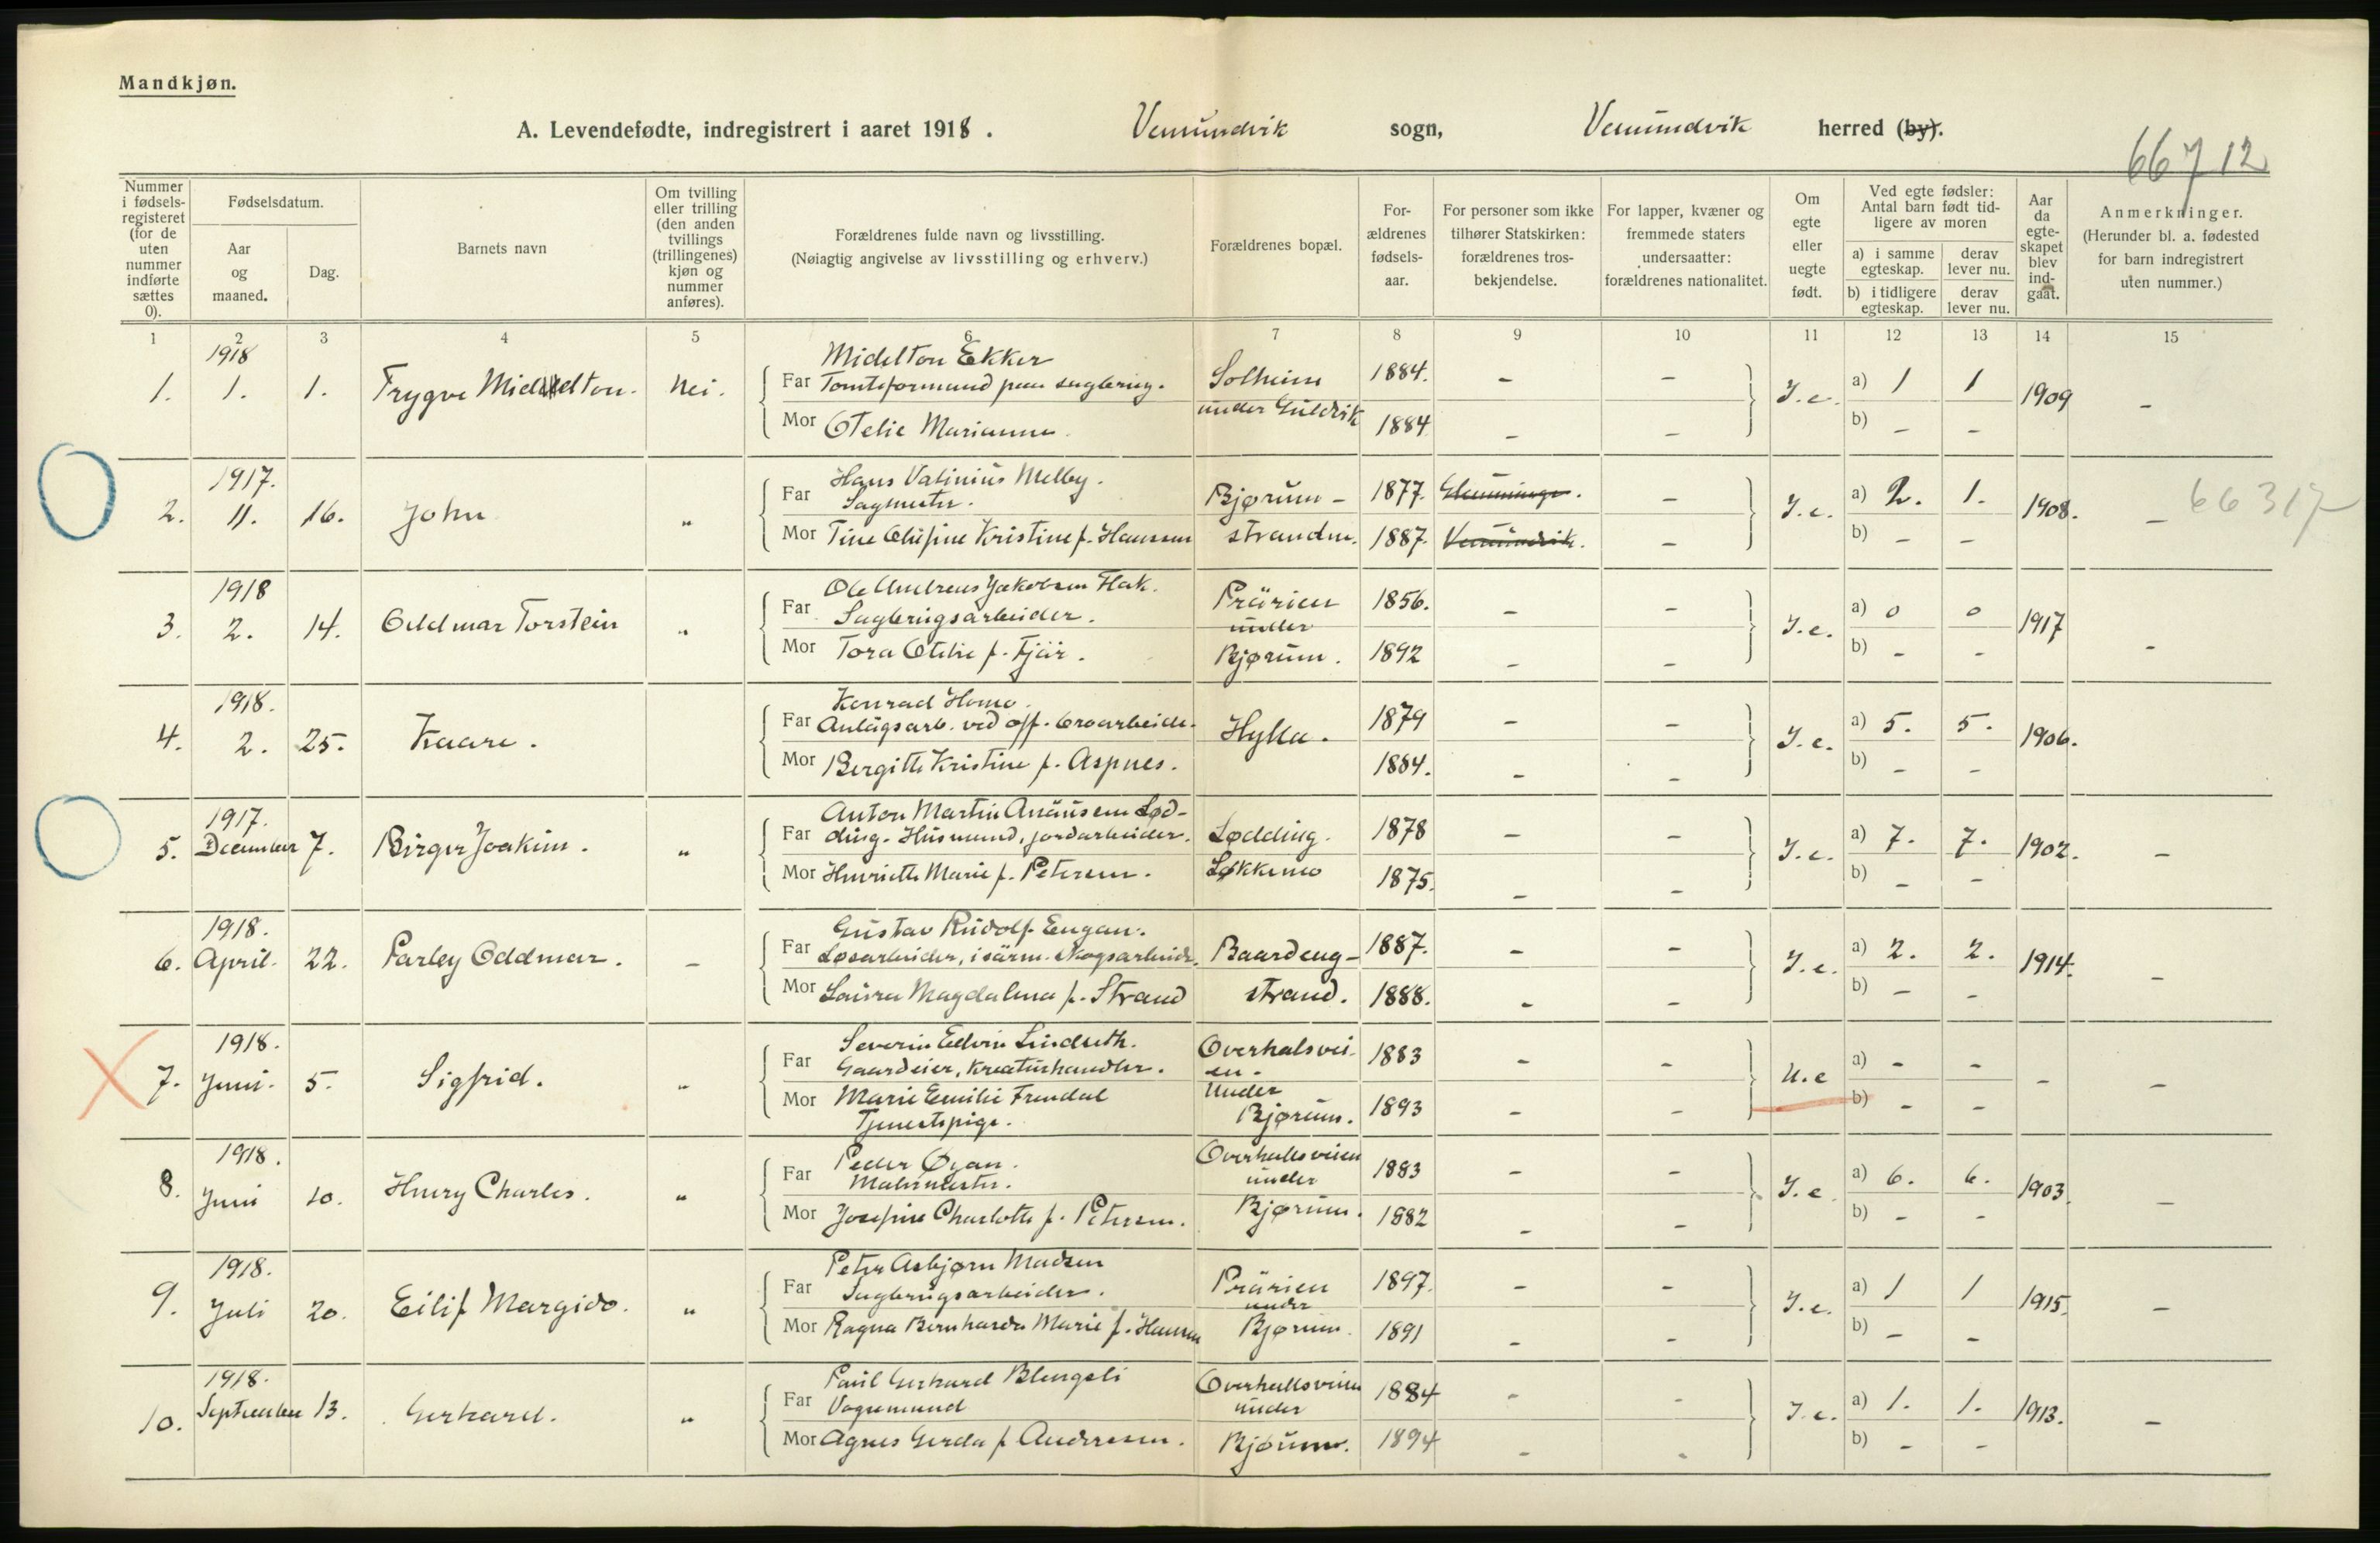 Mandkjøn.
A. Levendefødte, indregistrert i aaret 1918. Vemundvik sogn, Vemundvik herred (by).
66712
Nummer i fødselsregisteret (for de uten nummer indførte sættes 0).
Fødselsdatum.
Aar og maaned.
Dag.
Barnets navn
Om tvilling eller trilling (den anden tvillings (trillingenes) kjøn og nummer anføres).
Forældrenes fulde navn og livsstilling.
(Nøiagtig angivelse av livsstilling og erhverv.)
Forældrenes bopæl.
For-ældrenes fødsels-aar.
For personer som ikke tilhører Statskirken: forældrenes tros-bekjendelse.
For lapper, kvæner og fremmede staters undersaatter: forældrenes nationalitet.
Om egte eller uegte født.
Ved egte fødsler: Antal barn født tid-ligere av moren
a) i samme egteskap. derav lever nu.
b) i tidligere egteskap. derav lever nu.
Aar da egte-skapet blev ind-gaat.
Anmerkninger.
(Herunder bl. a. fødested for barn indregistrert uten nummer.)
1 2 3 4 5 6 7 8 9 10 11 12 13 14 15
1918 Midelton Ekker
1. 1. 1. Trygve Middelton. Nei. Far Tomteformand paa sagbrug. Solheim 1884. - - I.e. a) 1 1 1909 -
Mor Otelie Marianne. under Guldvik 1884 - - b) - -
1917. Hans Valinius Melby.
2. 11. 16. John " Far Sagmester. Bjørum- 1877. Glemminge. - I.e. a) 2. 1. 1908. - 66317
Mor Tine Olufine Kristine f. Hanssen strandm. 1887. Vemundvik. - b) - -
1918 Ole Andreas Jakobsen Flak.
3. 2. 14. Oddmar Torstein " Far Sagbrugsarbeider. Prärien under 1856. - - I.e. a) 0 0 1917 -
Mor Tora Otelie f. Fjär. Bjørum. 1892 - - b) - -
1918. Konrad Homo.
4. 2. 25. Kaare. Far Anlägsarb. ved off. broarbeide. Hylla. 1879 - - I.e. a) 5. 5. 1906.
Mor Bergitte Kristine f. Aspnes. 1884. - - b) - -
1917. Anton Martin Anäusen Lød-
5. December 7. Birger Joakim. " Far ding. Husmand, jordarbeider. Lødding. 1878 - - I.e. a) 7. 7. 1902. -
Mor Henriette Marie f. Petersen. Løkkemo 1875. - - b) - -
1918. Gustav Rudolf Engan.
6. April. 22. Parley Oddmar. - Far Løsarbeider, isärm. skogsarbeide. Baardeng- 1887. - - I.e. a) 2. 2. 1914. -
Mor Laura Magdalena f. Strand strand. 1888. - - b) - -
1918. Severin Edvin Lindseth. Overhalsvei-
7. Juni. 5. Sigfrid. " Far Gaardeier, kreaturhandler. en. 1883 - - U.e a) - - - -
Mor Marie Emilie Fremdal Under 1893 - - b) - -
Tjenestepige. Bjørum.
1918. Peder Øyan. Overhallsveien
8. Juni 10. Henry Charles. " Far Malermester. under 1883 - - I.e. a) 6. 6. 1903. -
Mor Josefine Charlotte f. Petersen. Bjørum. 1882 - - b) - -
1918. Peter Asbjørn Madsen
9. Juli 20. Eilif Margido. " Far Sagbrugsarbeider. Prärien under 1897. - - I.e. a) 1 1 1915. -
Mor Ragna Bernharda Marie f. Hansen Bjørum. 1891 - - b) - -
1918. Paul Gerhard Blengsli Overhallsveien
10. September 13. Gerhard. " Far Vognmand under 1884 - - I.e. a) 1. 1. 1913. -
Mor Agnes Gerda f. Andresen. Bjørum. 1894 - - b) - -